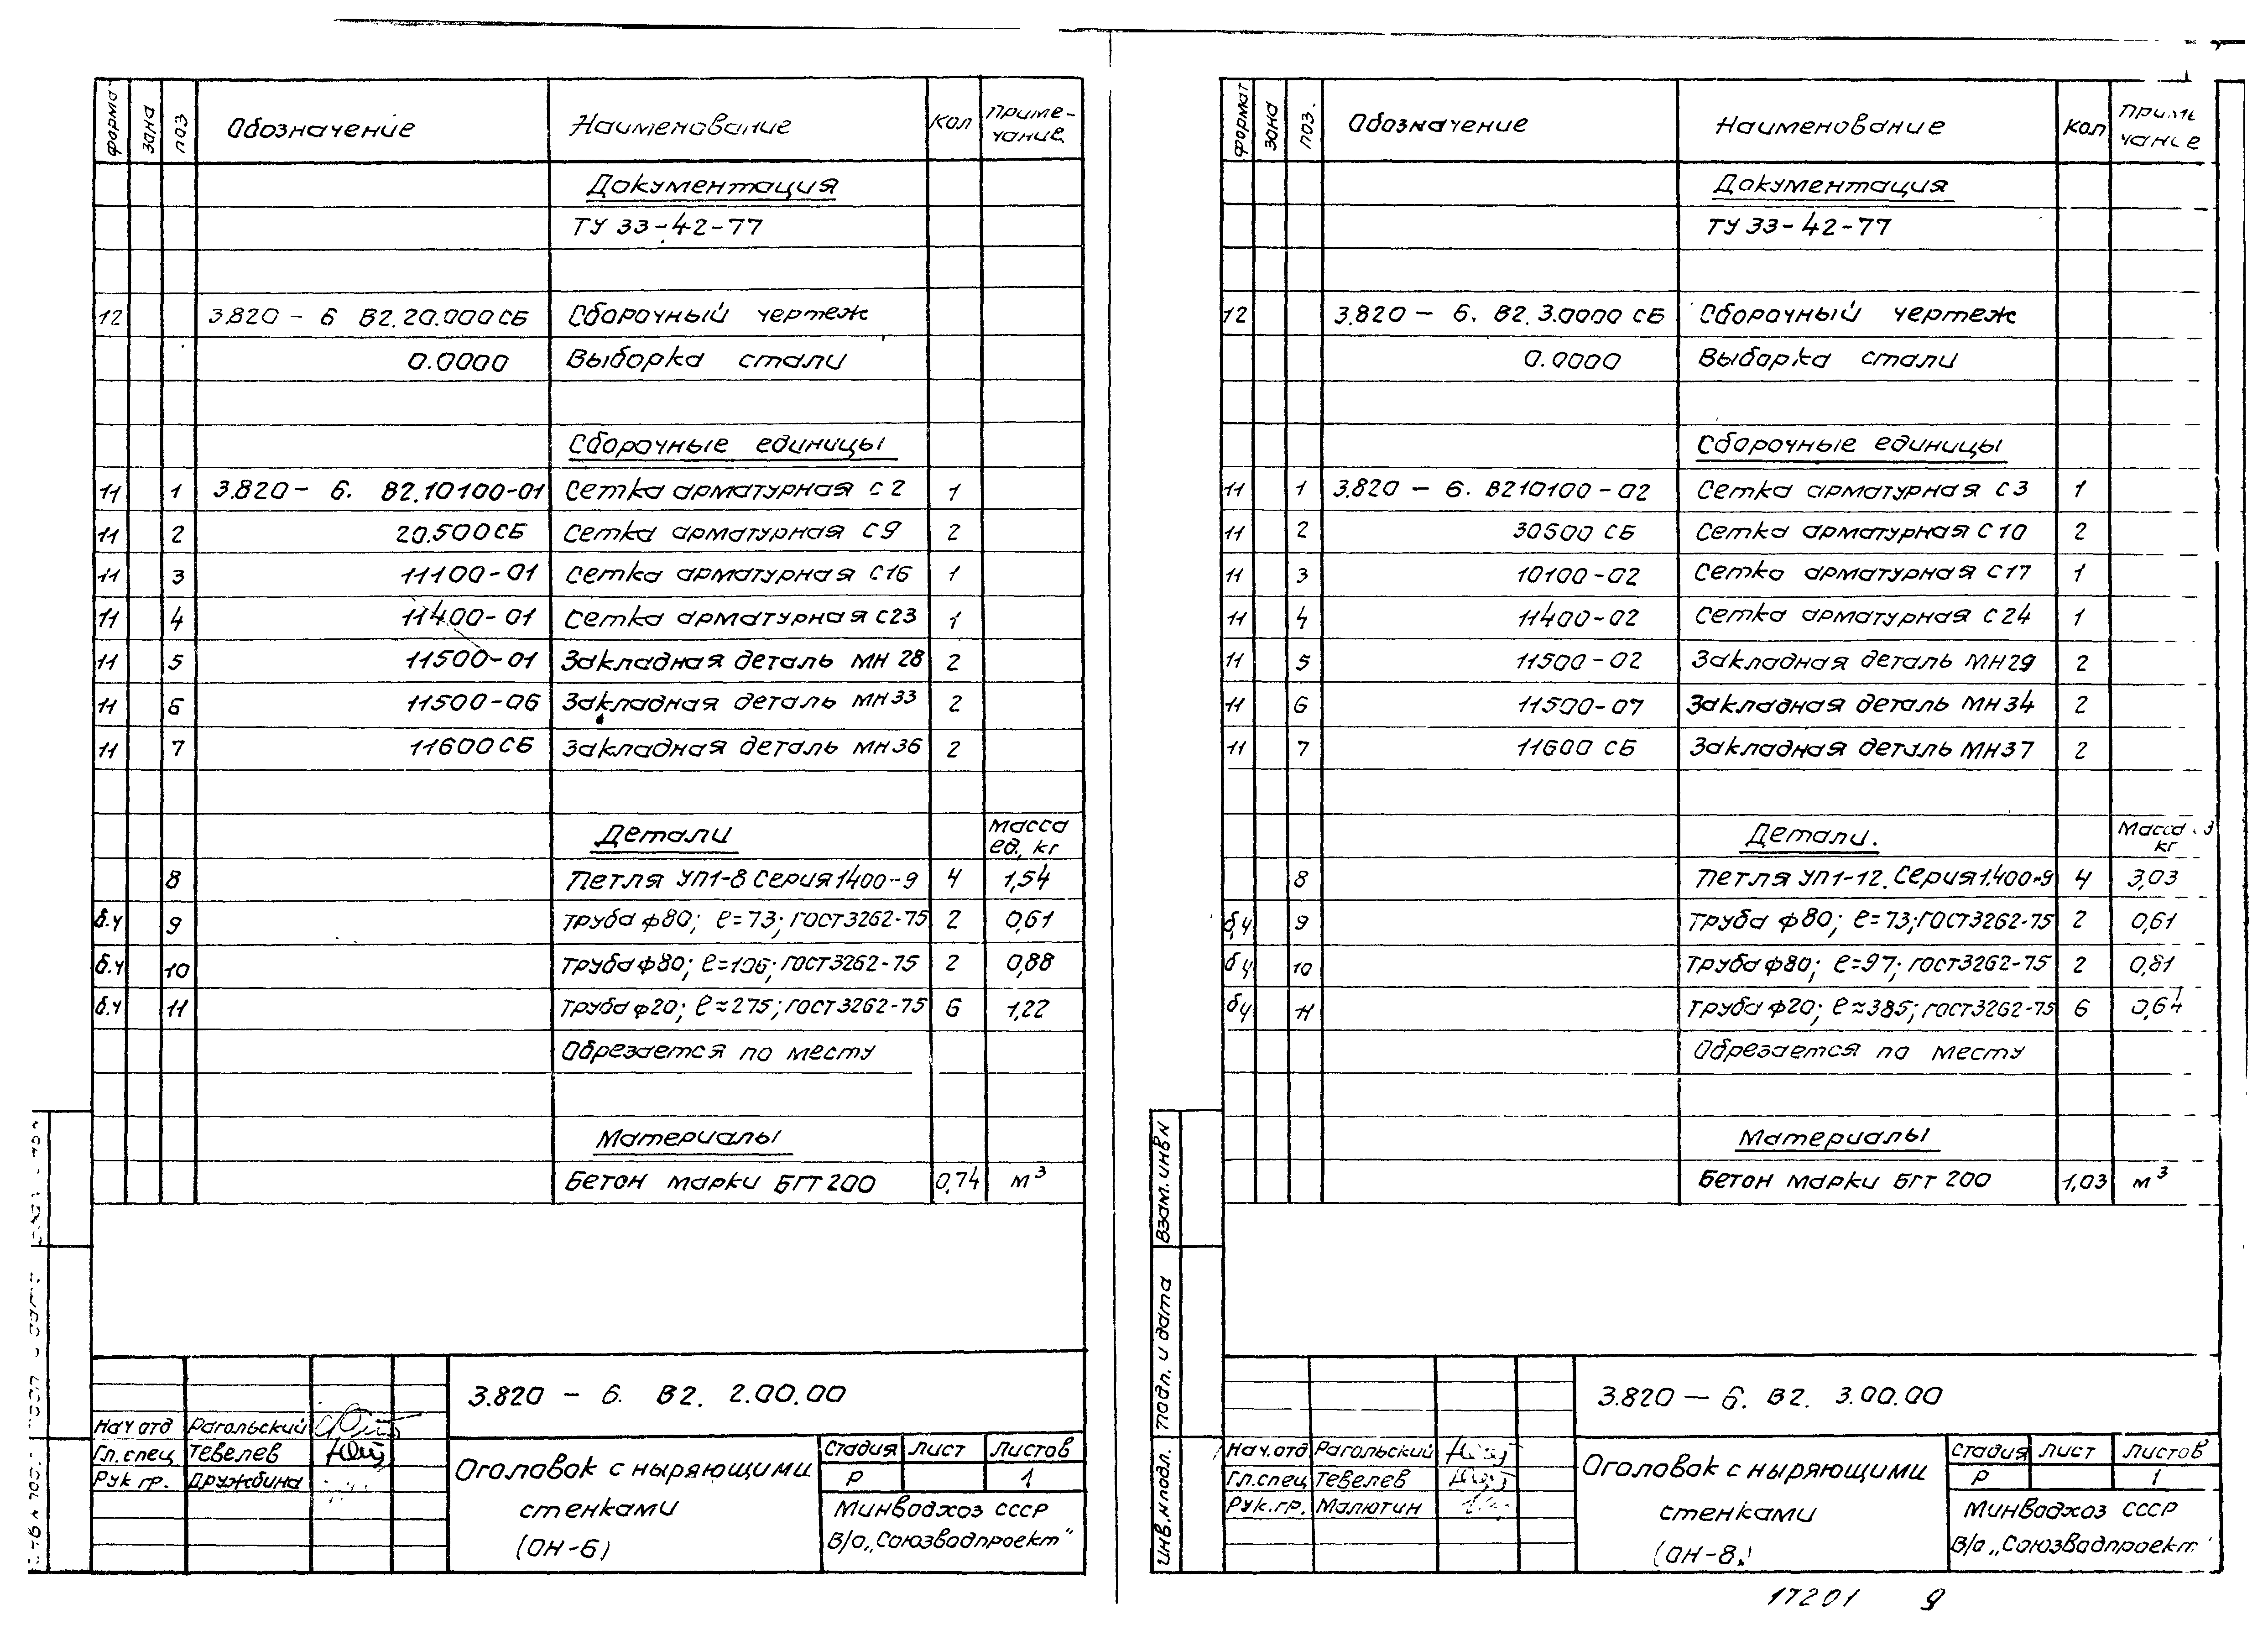 формат зона поз Обозначение Наименование Кол Приме-
чание
Документация
ТУ 33-42-77
12 3.820 - 6 В2.20.000СБ Сборочный чертеж
0.0000 Выборка стали
Сборочные единицы
11 1 3.820 - 6. В2.10100-01 Сетка арматурная С2 1
11 2 20.500СБ Сетка арматурная С9 2
11 3 11100-01 Сетка арматурная С16 1
11 4 11400-01 Сетка арматурная С23 1
11 5 11500-01 Закладная деталь МН 28 2
11 6 11500-06 Закладная деталь МН33 2
11 7 11600СБ Закладная деталь МН36 2
Детали Масса
ед., кг
8 Петля УП1-8 Серия 1400-9 4 1,54
б.ч 9 Труба ф80; ℓ=73; ГОСТ3262-75 2 0,61
б.ч 10 Труба ф80; ℓ=106; ГОСТ3262-75 2 0,88
б.ч 11 Труба ф20; ℓ≈275; ГОСТ3262-75 6 1,22
Обрезается по месту
Материалы
Бетон марки БГТ 200 0,74 м³
3.820 - 6. В2. 2.00.00
Нач отд Рагольский
Гл.спец Тевелев
Рук гр. Дружбина
Оголовок с ныряющими
стенками
(ОН-6)
Стадия Лист Листов
Р 1
Минводхоз СССР
В/о „Союзводпроект"
формат зона поз. Обозначение Наименование Кол
Документация
ТУ 33-42-77
12 3.820 - 6. В2. 3.0000 СБ Сборочный чертеж
0.0000 Выборка стали
Сборочные единицы
11 1 3.820 - 6. В210100-02 Сетка арматурная С3 1
11 2 30500 СБ Сетка арматурная С10 2
11 3 10100-02 Сетка арматурная С17 1
11 4 11400-02 Сетка арматурная С24 1
11 5 11500-02 Закладная деталь МН29 2
11 6 11500-07 Закладная деталь МН34 2
11 7 11600 СБ Закладная деталь МН37 2
Детали. Масса
кг
8 Петля УП1-12. Серия 1.400-9 4 3,03
б,ч 9 Труба ф80; ℓ=73; ГОСТ3262-75 2 0,61
б ч 10 Труба ф80; ℓ=97; ГОСТ3262-75 2 0,81
бч 11 Труба ф20; ℓ≈385; ГОСТ3262-75 6 0,64
Обрезается по месту
Материалы
Бетон марки БГТ 200 1,03 м³
Взам. инв N
Подп. и дата
Инв. N подл.
3.820 - 6. В2. 3.00.00
Нач.отд Рагольский
Гл.спец Тевелев
Рук.гр. Малютин
Оголовок с ныряющими
стенками
(ОН-8)
Стадия Лист Листов
Р 1
Минводхоз СССР
В/о „Союзводпроект"
17201 9